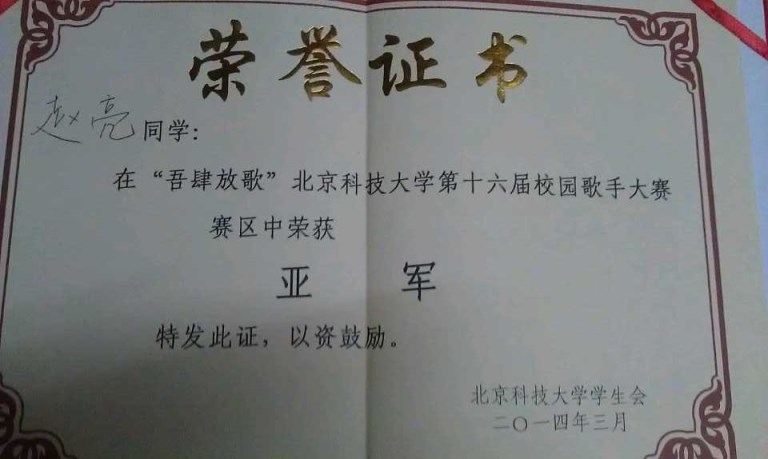 荣誉证书
赵亮同学：
在“吾肆放歌”北京科技大学第十六届校园歌手大赛
赛区中荣获
亚军
特发此证，以资鼓励。
北京科技大学学生会
二〇一四年三月